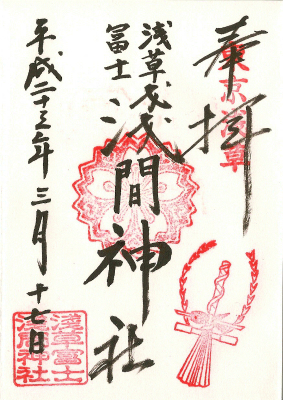 奉拝
東京浅草
浅草
冨士
浅間神社
平成二十三年三月十七日
浅草冨士
浅間神社